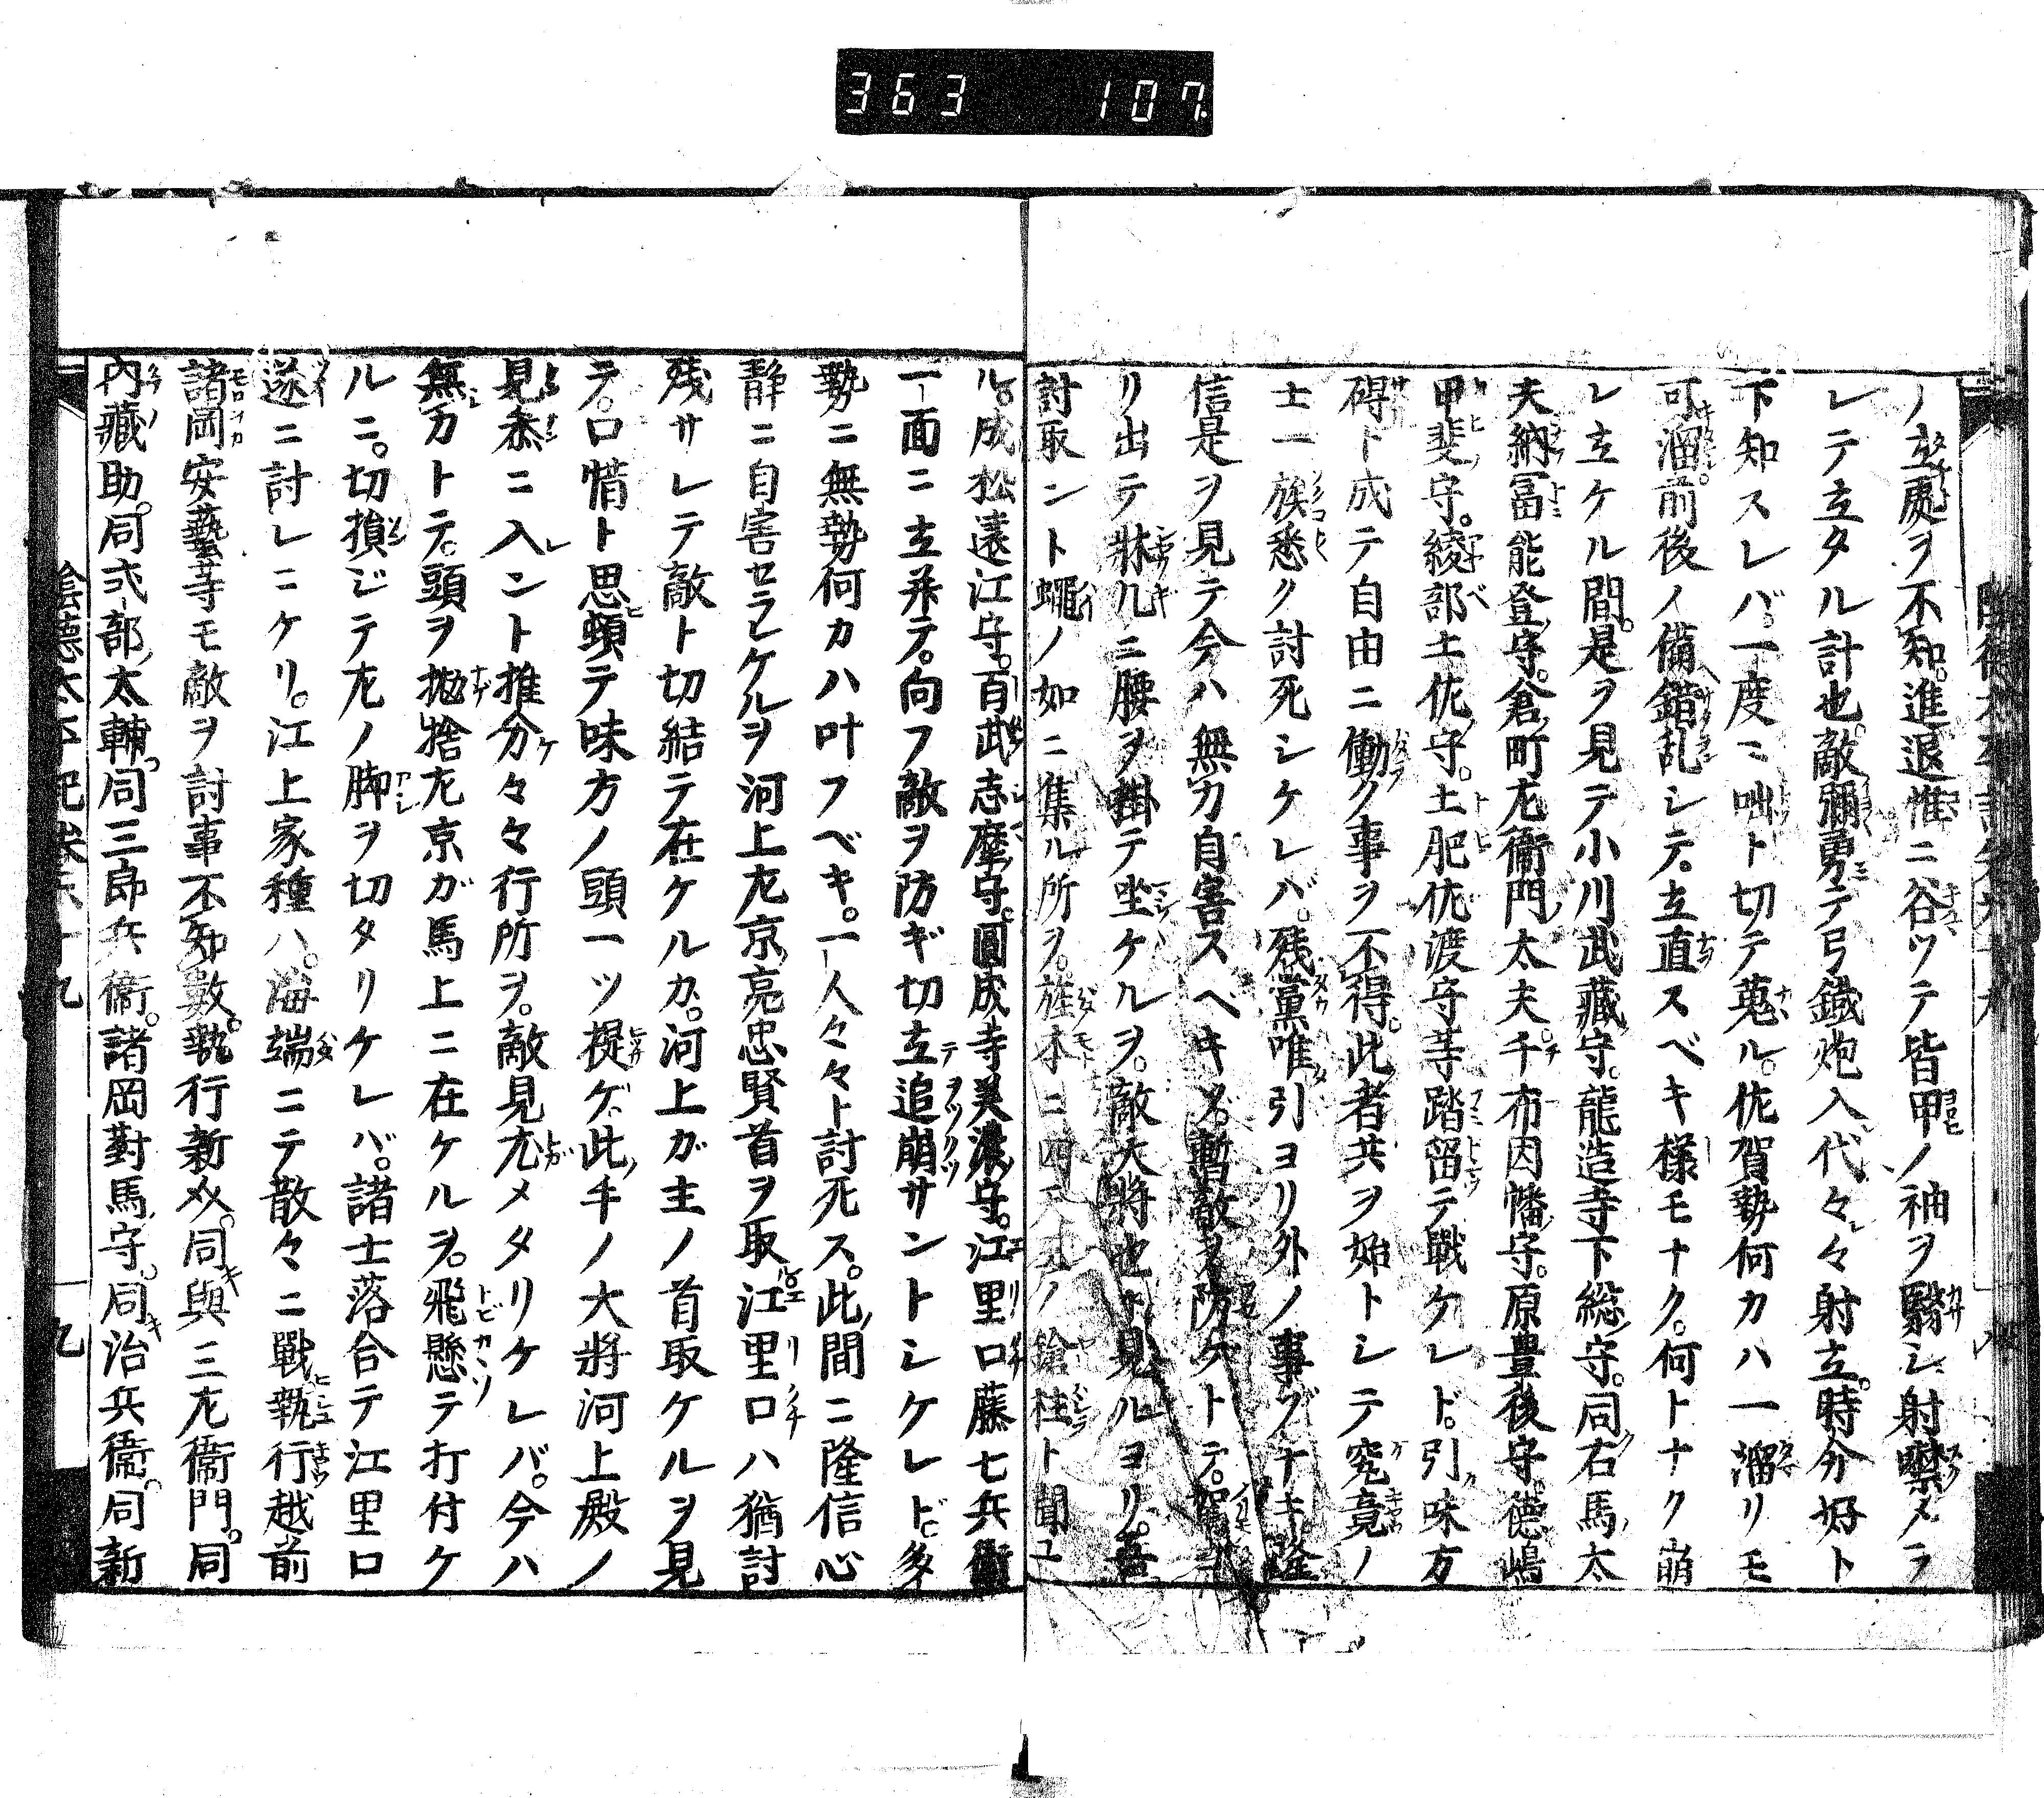 363 107
ノ立處ヲ不知。進退惟ニ谷ツテ皆甲ノ袖ヲ翳シ射噤メラ
レテ立タル計也。敵彌勇テ弓鐵炮入代々々射立。時分好ト
下知スレバ。一度ニ咄ト切テ蒐ル。佐賀勢何カハ一溜リモ
可溜。前後ノ備錯乱シテ。立直スベキ様モナク。何トナク崩
レ立ケル間。是ヲ見テ小川武藏守。龍造寺下総守。同右馬太
夫納冨能登守。倉町左衞門太夫千布因幡守。原豊後守。徳嶋
甲斐守。綾部土佐守。土肥佐渡守等踏留テ戰ケレド。引味方
碍ト成テ自由ニ働ノ事ヲ不得。此者共ヲ始トシテ究竟ノ
士一族悉ク討死シケレバ。残黨唯引ヨリ外ノ事ゾナキ。隆
信是ヲ見テ今ハ無力自害スヘキゾ。暫敵ヲ防ゲトテ。
リ出テ牀几ニ腰ヲ掛テ坐ケルヲ。敵大將也ト見ルヨリ。吾
討取ント蠅ノ如ニ集ル所ヲ。旌本ニ四天王ノ鎗柱ト聞ユ
ル。成松遠江守。百武志摩守。圓成寺美濃守。江里口藤七兵衞
一面ニ立並テ。向フ敵ヲ防ギ切立追崩サントシケレド。多
勢ニ無勢何カハ叶フベキ。一人々々ト討死ス。此間ニ隆信心
靜ニ自害セラレケルヲ河上左京亮忠賢首ヲ取。江里口ハ猶討
残サレテ敵ト切結テ在ケルカ。河上ガ主ノ首取ケルヲ見
テ。口惜ト思頓テ味方ノ頭一ツ提ゲ。此手ノ大將河上殿ノ
見叅ニ入ント推分々々行所ヲ。敵見尤メタリケレバ。今ハ
無力トテ。頭ヲ抛捨左京ガ馬上ニ在ケルヲ。飛懸テ打付ケ
ルニ。切損ジテ左ノ脚ヲ切タリケレバ。諸士落合テ江里口
遂ニ討レニケリ。江上家種ハ。海端ニテ散々ニ戰執行越前
諸岡安藝等モ敵ヲ討事不知數。執行新メ。同與三左衞門。同
内藏助。同式部太輔。同三郎兵衞。諸岡對馬守。同治兵衞。同新
陰德太平記
九